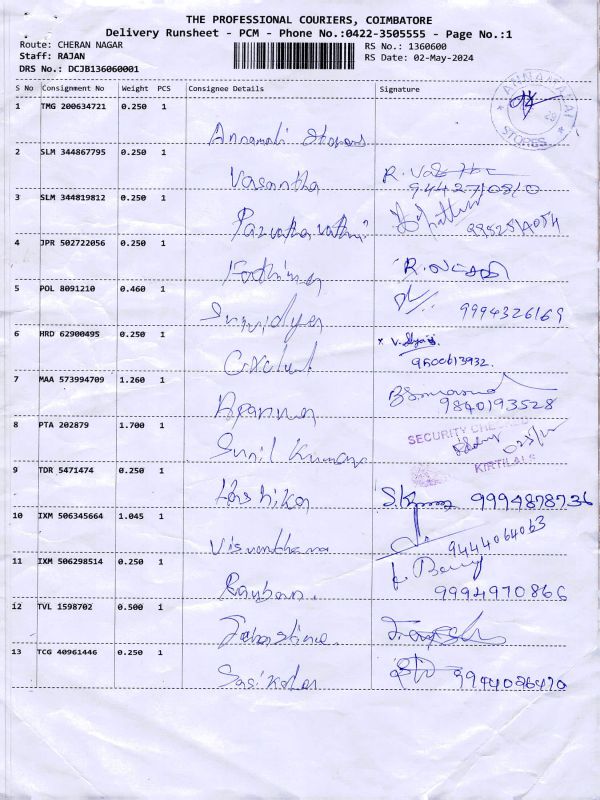 THE PROFESSIONAL COURIERS, COIMBATORE
Delivery Runsheet - PCM - Phone No.:0422-3505555 - Page No.:1
Route: CHERAN NAGAR
RS No.: 1360600
Staff: RAJAN
RS Date: 02-May-2024
DRS No.: DCJB136060001
S No Consignment No Weight PCS Consignee Details Signature
ANNAMALAI STORES 28
1 TMG 200634721 0.250 1
Annamali Stores
2 SLM 344867795 0.250 1
Vasantha R.
9442710810
3 SLM 344819812 0.250 1
4 JPR 502722056 0.250 1
R.
5 POL 8091210 0.460 1
Srividya 9994326169
6 HRD 62900495 0.250 1
x V.
9500613932.
7 MAA 573994709 1.260 1
Aparna 9840193528
8 PTA 202879 1.700 1
SECURITY CHECKED
Sunil Kumar
KIRTILALS
9 TDR 5471474 0.250 1
Harshika 9994878736
10 IXM 506345664 1.045 1
Viswanthana 9444064063
11 IXM 506298514 0.250 1
9994970866
12 TVL 1598702 0.500 1
13 TCG 40961446 0.250 1
Sasikala